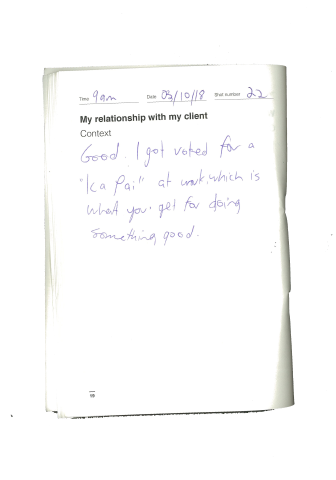 Time 9am Date 03/10/18 Shot number 22
My relationship with my client
Context
Good. I got voted for a
"Ka Pai" at work, which is
what you get for doing
something good.